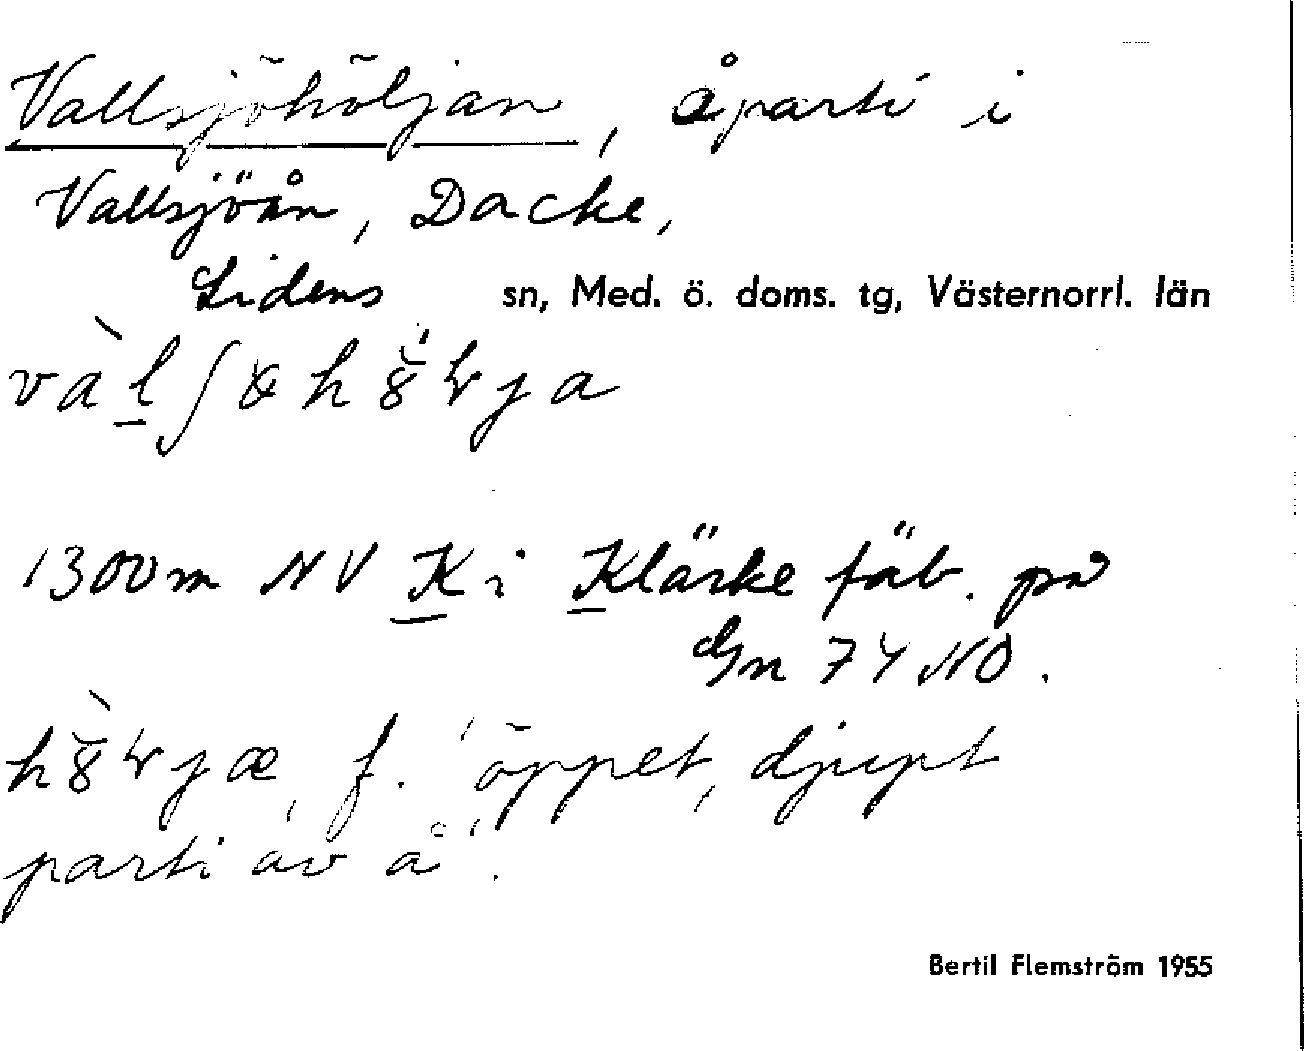 Vallsjöhöljan, åparti i
Vallsjöån, Dacke,
Lidens sn, Med. ö. doms. tg, Västernorrl. län
1300 m NV K i Klärke fäb. på
Gn 74 NO.
f. 'öppet, djupt
parti av å'.
Bertil Flemström 1955